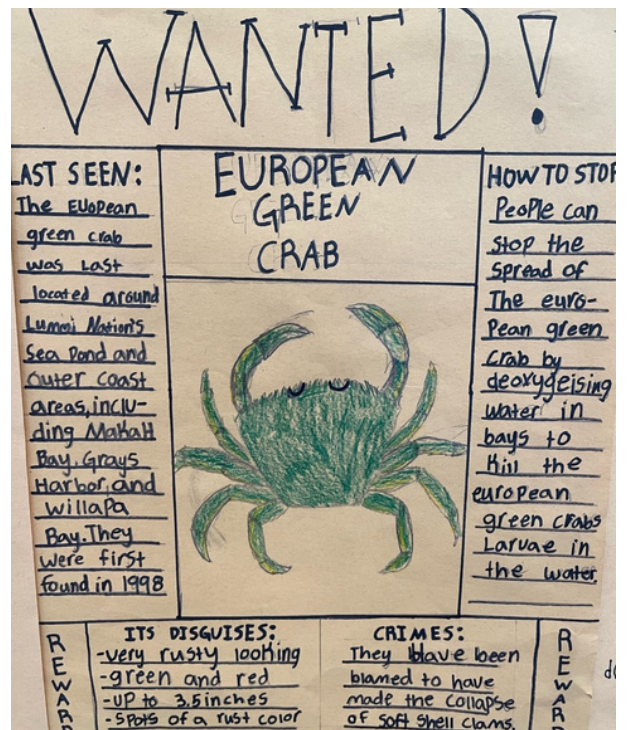 WANTED!
LAST SEEN:
The EUoPean
green crab
was Last
located around
Lummi Nation's
Sea Pond and
outer coast
areas,inclu-
ding MaKaH
Bay, Grays
Harbor,and
willapa
Bay.They
were first
found in 1998
EUROPEAN
GREEN
CRAB
HOW TO STOP
PeoPle can
stop the
spread of
The euro-
Pean green
crab by
deoxygeising
water in
bays to
Kill the
european
green crabs
Larvae in
the water.
REWARD
ITS DISGUISES:
-very rusty looking
-green and red
-UP to 3.5 inches
-Spots of a rust color
CRIMES:
They have been
blamed to have
made the collapse
of soft shell clams.
REWAR